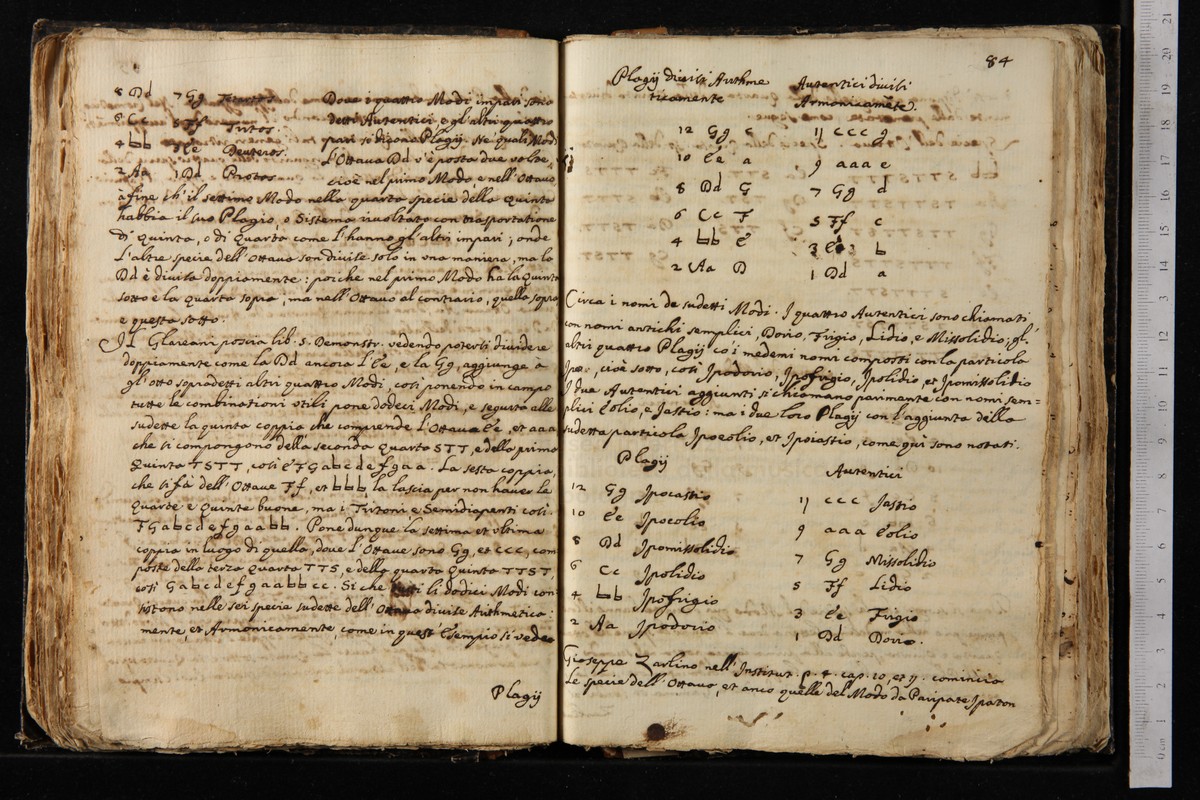 8 Dd 7 Gg Tetartos. Dove i quattro Modi impari sono
6 Cc 5 Ff Tritos. detti Autentici, e gl'altri quattro
4 bb 3 Ee Deuteros. pari si dicono Plagij. Ne quali Modi
2 Aa 1 Dd Protos. l'Ottava Dd v'è posta due volte,
cioè nel primo Modo, e nell'Ottavo
à fine ch'il settimo Modo nella quarta specie della Quinta
habbia il suo Plagio, o Sistema rivoltato con trasportatione
di Quinta, o di Quarta come l'hanno gl'altri impari; onde
l'altre specie dell'Ottava son divise solo in una maniera, ma la
Dd è divisa doppiamente: poiche nel primo Modo ha la Quinta
sotto e la Quarta sopra; ma nell'Ottavo al contrario, quella sopra
e questa sotto.
Il Glareani poscia lib. 5. Demonstr. vedendo potersi dividere
doppiamente come la Dd ancora l'Ee, e la Gg, aggiunge à
gl'otto sopradetti altri quattro Modi, così ponendo in campo
tutte le combinationi utili pone dodeci Modi, e seguita alle
sudette la quinta coppia che comprende l'Ottave Ee, et aaa
che si compongono della seconda Quarta STT, e della prima
Quinta TSTT, così EFGabcdefgaa. La sesta coppia,
che si fà dell'Ottave Ff, et bbb, la lascia per non haver le
Quarte e Quinte buone, ma i Tritoni e Semidiapenti così
FGabcdefgaabb. Pone dunque la settima et ultima
coppia in luogo di quella, dove l'Ottave sono Gg, et ccc, com
poste della terza Quarta TTS, e della quarta Quinta TTST,
così Gabcdefgaabbcc. Si che tutti li dodici Modi con
sistono nelle sei specie sudette dell'Ottava divise Arithmetica-
mente et Armonicamente come in quest'Esempio si vedea
Plagij
84
Plagij divisi Arithme Autentici divisi
ticamente Armonicamēte.
12 Gg c 11 ccc g
10 Ee a 9 aaa e
8 Dd G 7 Gg d
6 Cc F 5 Ff c
4 bb E 3 Ee b
2 Aa D 1 Dd a
Circa i nomi de sudetti Modi. I quattro Autentici sono chiamati
con nomi antichi semplici, Dorio, Frigio, Lidio, e Missolidio; gl'
altri quattro Plagij co'i medemi nomi composti con la particola
Ipo, cioè sotto, così Ipodorio, Ipofrigio, Ipolidio, et Ipomissolidio
I due Autentici aggiunti si chiamano parimente con nomi sem-
plici Eolio, e Jastio: ma i due loro Plagij con l'aggiunta della
sudetta particola Ipoeolio, et Ipoiastio, come quì sono notati.
Plagij Autentici
12 Gg Ipoiastio 11 ccc Jastio
10 Ee Ipoeolio 9 aaa Eolio
8 Dd Ipomissolidio 7 Gg Missolidio
6 Cc Ipolidio 5 Ff Lidio
4 bb Ipofrigio 3 Ee Frigio
2 Aa Ipodorio 1 Dd Dorio.
Gioseppe Zarlino nell'Institut. p. 4. cap. 10, et 11. comincia
le specie dell'Ottava, et anco quelle del Modo da Paripate Ipaton